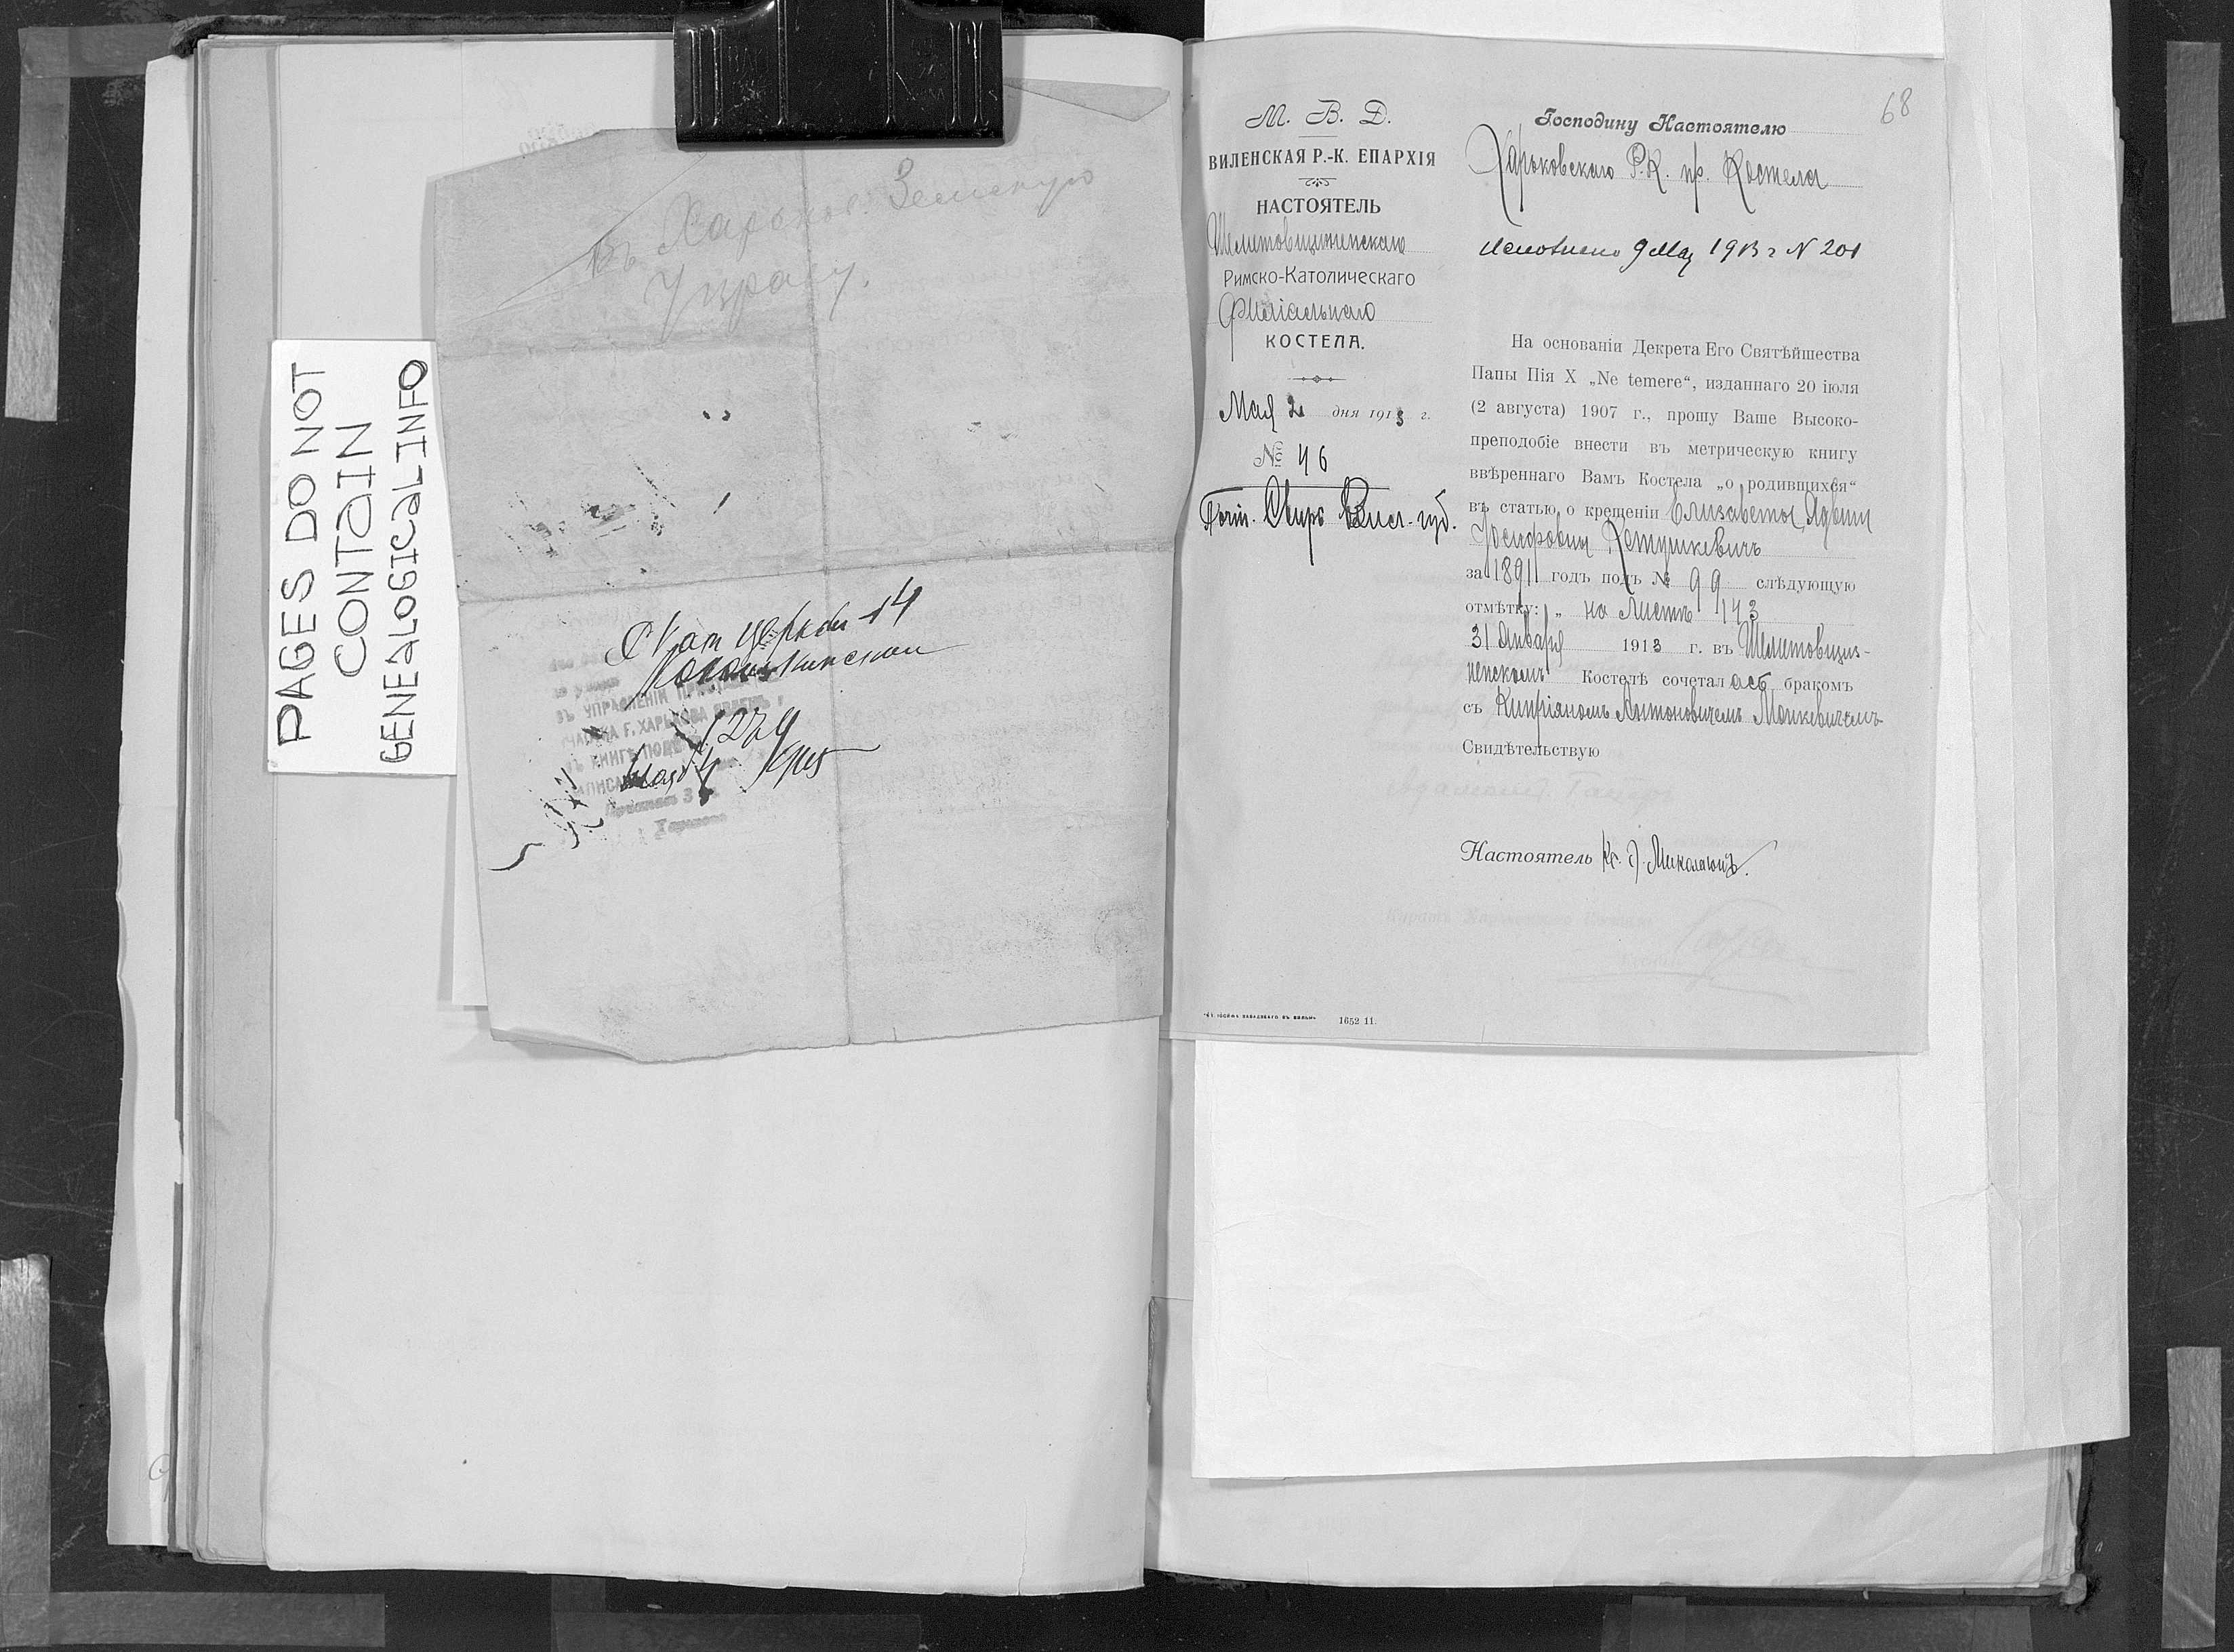 PAGES DO NOT
CONTAIN
GENEALOGICAL INFO
Въ Харьков. Земскую
Управу.
14
1229
ВЪ УПРАВЛЕНІИ
Г. ХАРЬКОВА
68
М. В. Д.
ВИЛЕНСКАЯ Р.-К. ЕПАРХІЯ
НАСТОЯТЕЛЬ
Шеметовщизненскаго
Римско-Католическаго
Филіальнаго
КОСТЕЛА.
Мая 2 дня 1913 г.
№ 46
Почт. Свирь Вилен. губ.
Господину Настоятелю
Харьковскаго Р.К. пр. Костела
Исполнено 9 Мая 1913 г N 201
На основаніи Декрета Его Святѣйшества
Папы Пія X „Ne temere“, изданнаго 20 іюля
(2 августа) 1907 г., прошу Ваше Высоко-
преподобіе внести въ метрическую книгу
ввѣреннаго Вамъ Костела „о родившихся“
въ статью о крещеніи Елизаветы Ядвиги
Іосифовны
за 1891 годъ подъ № 99 слѣдующую
отмѣтку: „ на листѣ 143
31 Января 1913 г. въ Шеметовщиз-
ненскомъ Костелѣ сочеталась бракомъ
съ Кипріяномъ Антоновичемъ Монкевичемъ
Свидѣтельствую
Настоятель Кс.
1652 11.